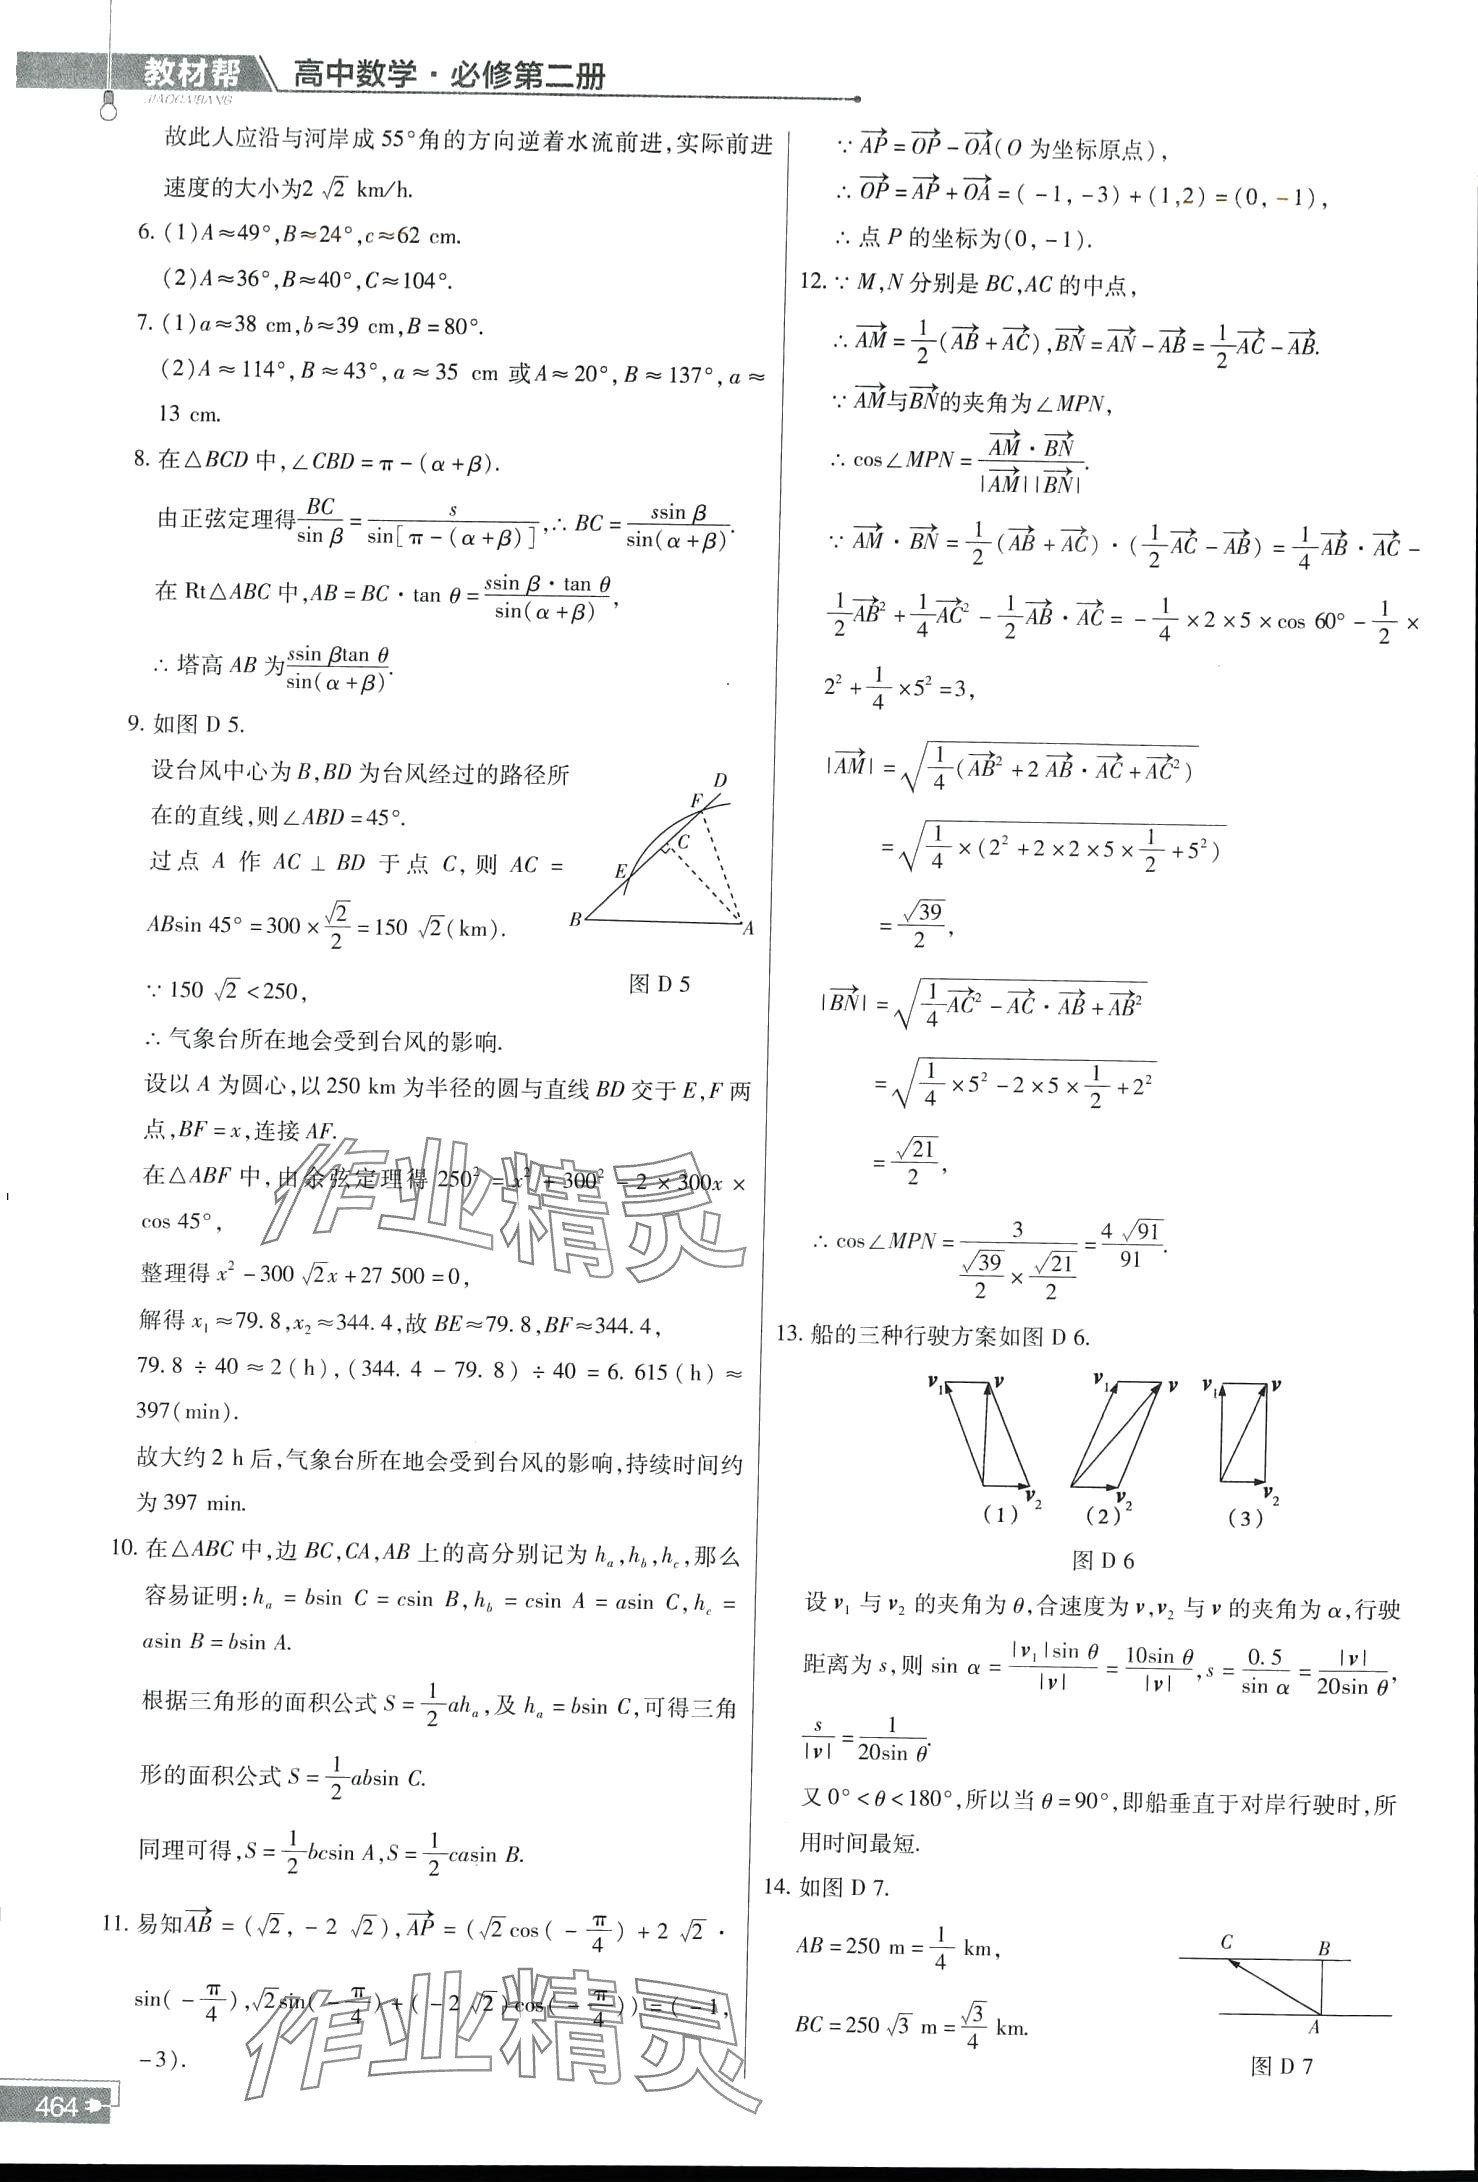 教材帮 高中数学·必修第二册
JIAOCAIBANG
故此人应沿与河岸成 55°角的方向逆着水流前进,实际前进
速度的大小为2√2 km/h.
6. (1)A≈49°,B≈24°,c≈62 cm.
(2)A≈36°,B≈40°,C≈104°.
7. (1)a≈38 cm,b≈39 cm,B=80°.
(2)A≈114°,B≈43°,a≈35 cm 或A≈20°,B≈137°,a≈
13 cm.
8. 在△BCD 中,∠CBD=π-(α+β).
由正弦定理得BC/sin β=s/sin[π-(α+β)],∴ BC=ssin β/sin(α+β).
在 Rt△ABC 中,AB=BC·tan θ=ssin β·tan θ/sin(α+β),
∴ 塔高 AB 为ssin βtan θ/sin(α+β).
9. 如图 D 5.
设台风中心为 B,BD 为台风经过的路径所
在的直线,则∠ABD=45°.
过点 A 作 AC⊥BD 于点 C,则 AC=
ABsin 45°=300×√2/2=150√2(km).
D
F
C
E
B
A
图 D 5
∵ 150√2<250,
∴ 气象台所在地会受到台风的影响.
设以 A 为圆心,以 250 km 为半径的圆与直线 BD 交于 E,F 两
点,BF=x,连接 AF.
在△ABF 中,由余弦定理得 250²=x²+300²-2×300x×
cos 45°,
整理得 x²-300√2x+27 500=0,
解得 x₁≈79.8,x₂≈344.4,故 BE≈79.8,BF≈344.4,
79.8÷40≈2(h),(344.4-79.8)÷40=6.615(h)≈
397(min).
故大约 2 h 后,气象台所在地会受到台风的影响,持续时间约
为 397 min.
10. 在△ABC 中,边 BC,CA,AB 上的高分别记为 hₐ,h_b,h_c,那么
容易证明:hₐ=bsin C=csin B,h_b=csin A=asin C,h_c=
asin B=bsin A.
根据三角形的面积公式 S=1/2 ahₐ,及 hₐ=bsin C,可得三角
形的面积公式 S=1/2 absin C.
同理可得,S=1/2 bcsin A,S=1/2 casin B.
11. 易知AB→=(√2,-2√2),AP→=(√2cos(-π/4)+2√2·
sin(-π/4),√2sin(-π/4)+(-2√2)cos(-π/4))=(-1,
-3).
464
∵ AP→=OP→-OA→(O 为坐标原点),
∴ OP→=AP→+OA→=(-1,-3)+(1,2)=(0,-1),
∴ 点 P 的坐标为(0,-1).
12. ∵ M,N 分别是 BC,AC 的中点,
∴ AM→=1/2(AB→+AC→),BN→=AN→-AB→=1/2AC→-AB→.
∵ AM→与BN→的夹角为∠MPN,
∴ cos∠MPN=AM→·BN→/|AM→||BN→|.
∵ AM→·BN→=1/2(AB→+AC→)·(1/2AC→-AB→)=1/4AB→·AC→-
1/2AB→²+1/4AC→²-1/2AB→·AC→=-1/4×2×5×cos 60°-1/2×
2²+1/4×5²=3,
|AM→|=√(1/4(AB→²+2AB→·AC→+AC→²))
=√(1/4×(2²+2×2×5×1/2+5²))
=√39/2,
|BN→|=√(1/4AC→²-AC→·AB→+AB→²)
=√(1/4×5²-2×5×1/2+2²)
=√21/2,
∴ cos∠MPN=3/(√39/2×√21/2)=4√91/91.
13. 船的三种行驶方案如图 D 6.
v₁ v v₁ v v₁ v
v₂ v₂ v₂
(1) (2) (3)
图 D 6
设 v₁ 与 v₂ 的夹角为 θ,合速度为 v,v₂ 与 v 的夹角为 α,行驶
距离为 s,则 sin α=|v₁|sin θ/|v|=10sin θ/|v|,s=0.5/sin α=|v|/20sin θ,
s/|v|=1/20sin θ.
又 0°<θ<180°,所以当 θ=90°,即船垂直于对岸行驶时,所
用时间最短.
14. 如图 D 7.
AB=250 m=1/4 km,
BC=250√3 m=√3/4 km.
C
B
A
图 D 7
作业精灵
作业精灵